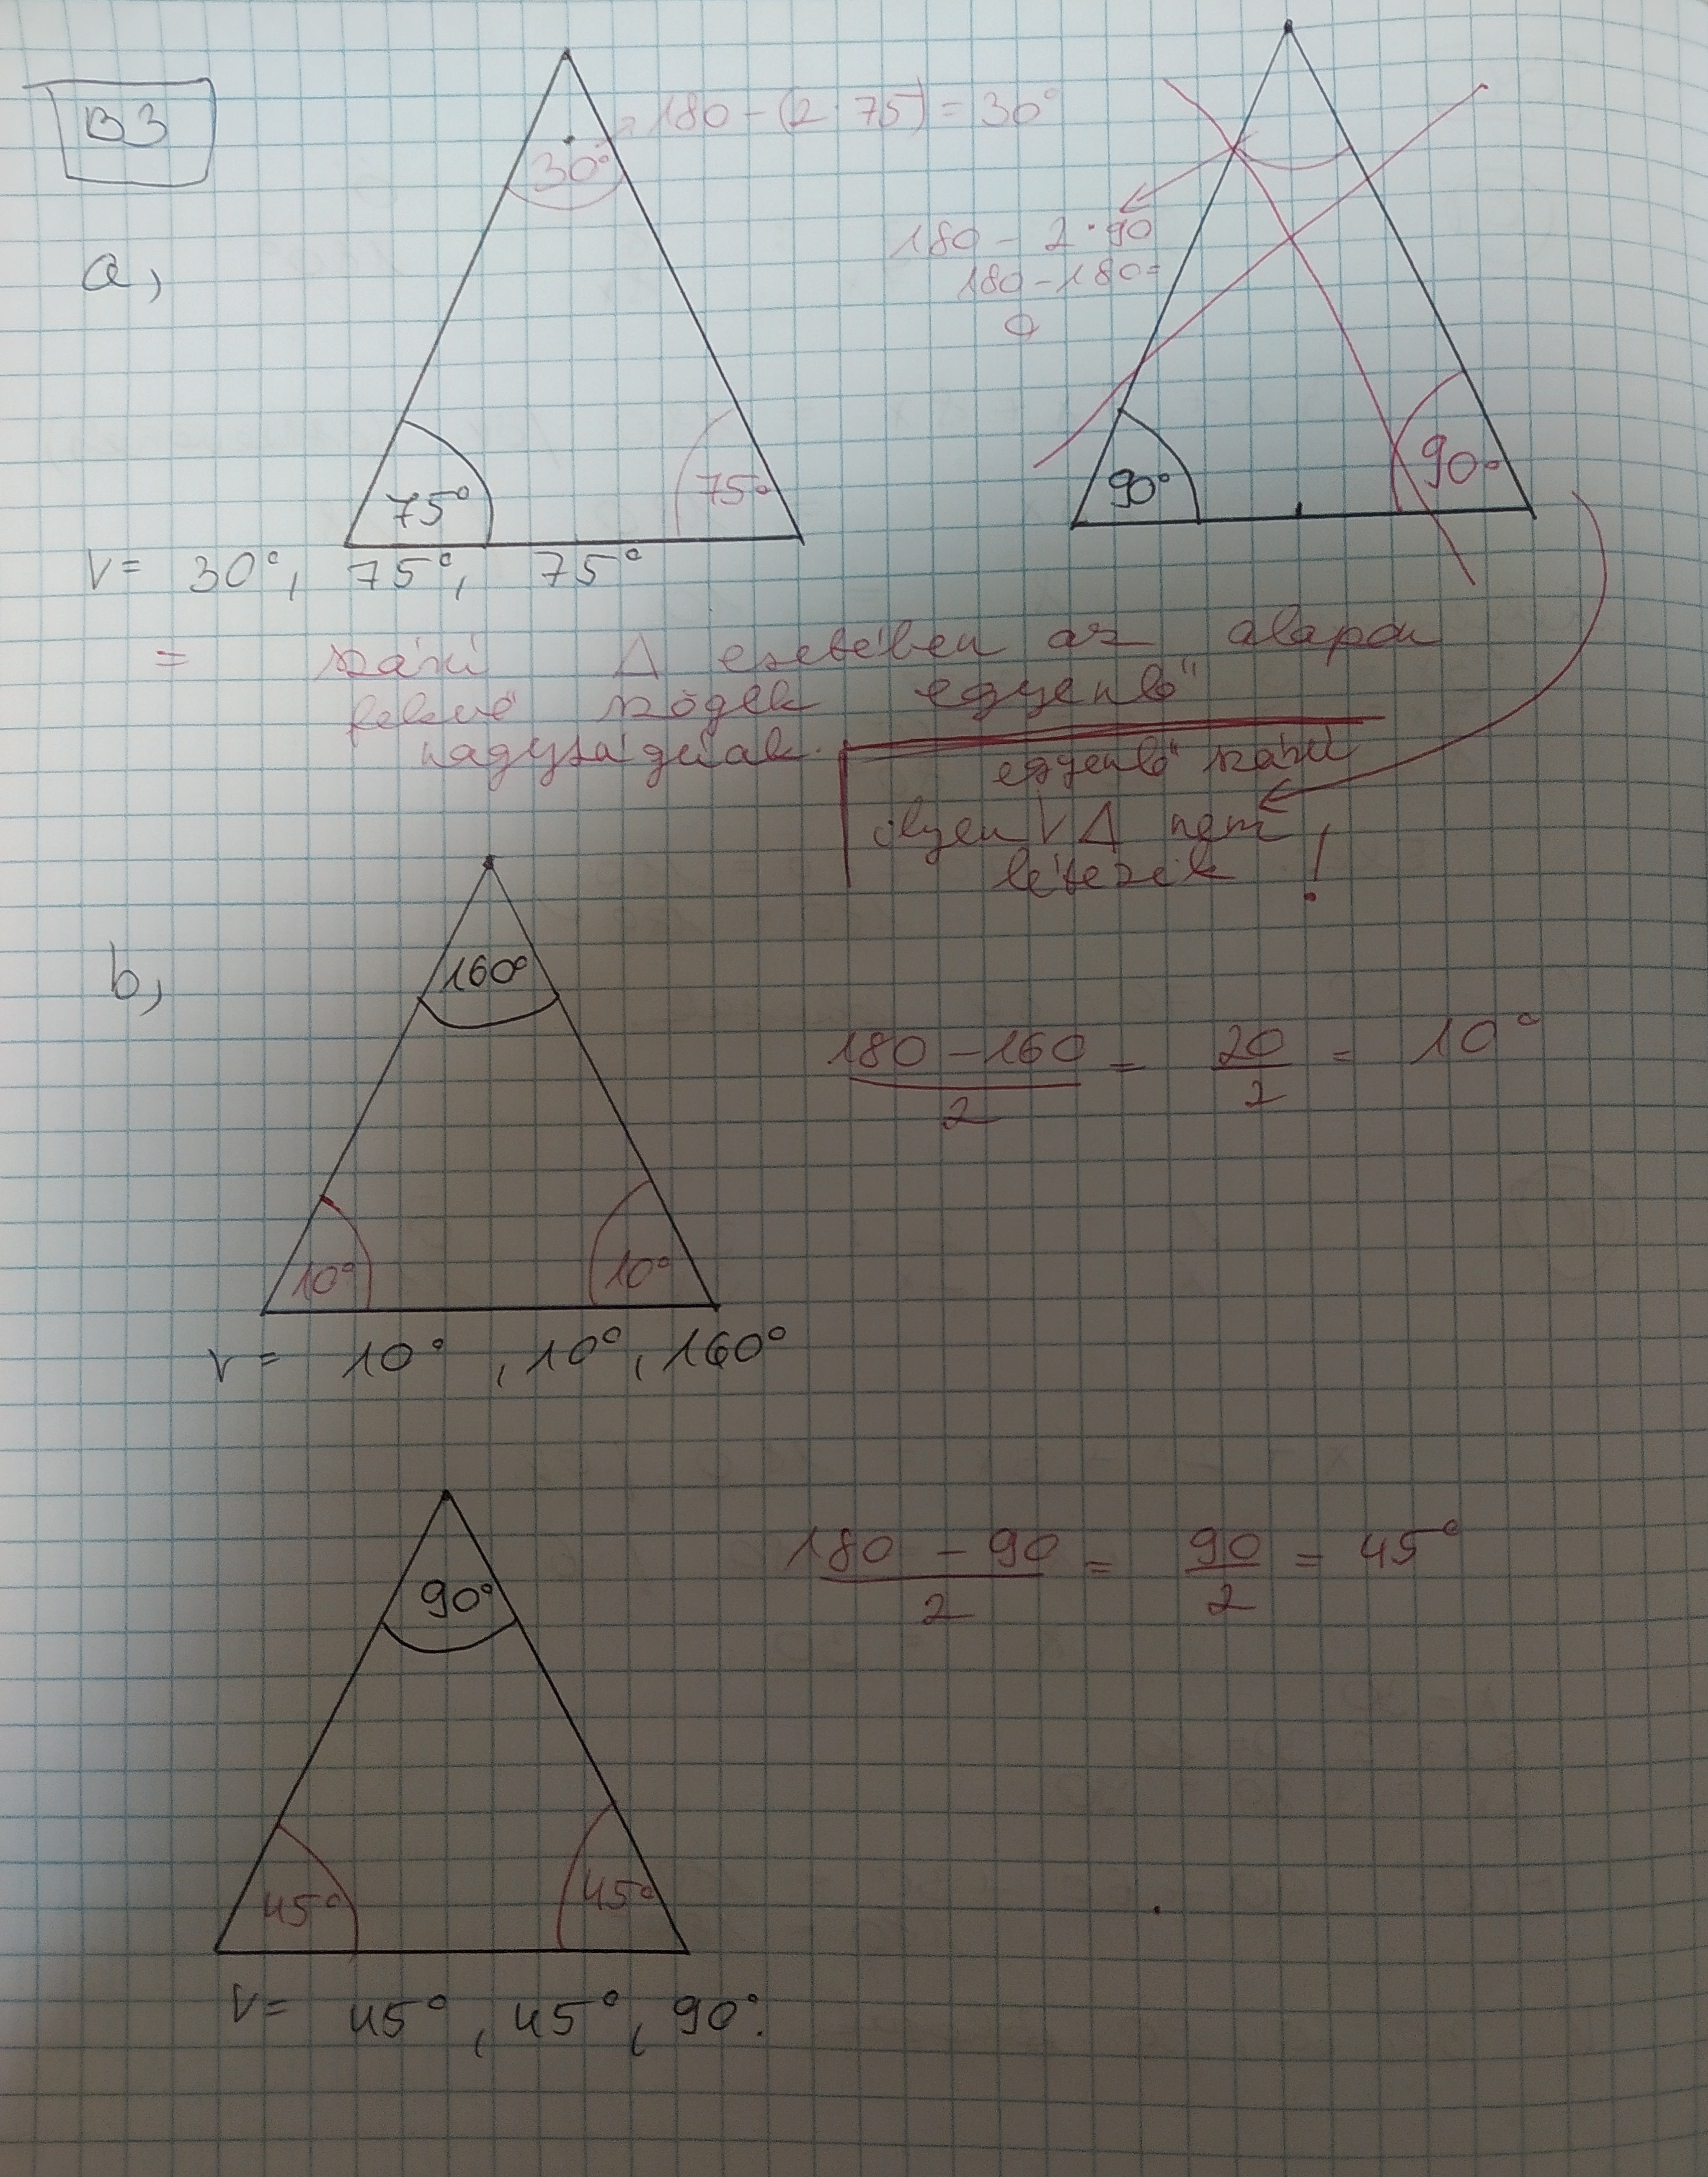 B3
180-(2·75)=30°
30°
a,
180-2·90
180-180=
0
75°
75°
90°
90°
V= 30°, 75°, 75°
= szárú Δ esetében az alapon
fekvő szögek egyenlő
nagyságúak.
egyenlő szárú
ilyen V Δ nem
létezik !
b,
160°
180-160/2 = 20/2 = 10°
10°
10°
V= 10°, 10°, 160°
90°
180-90/2 = 90/2 = 45°
45°
45°
V= 45°, 45°, 90°.